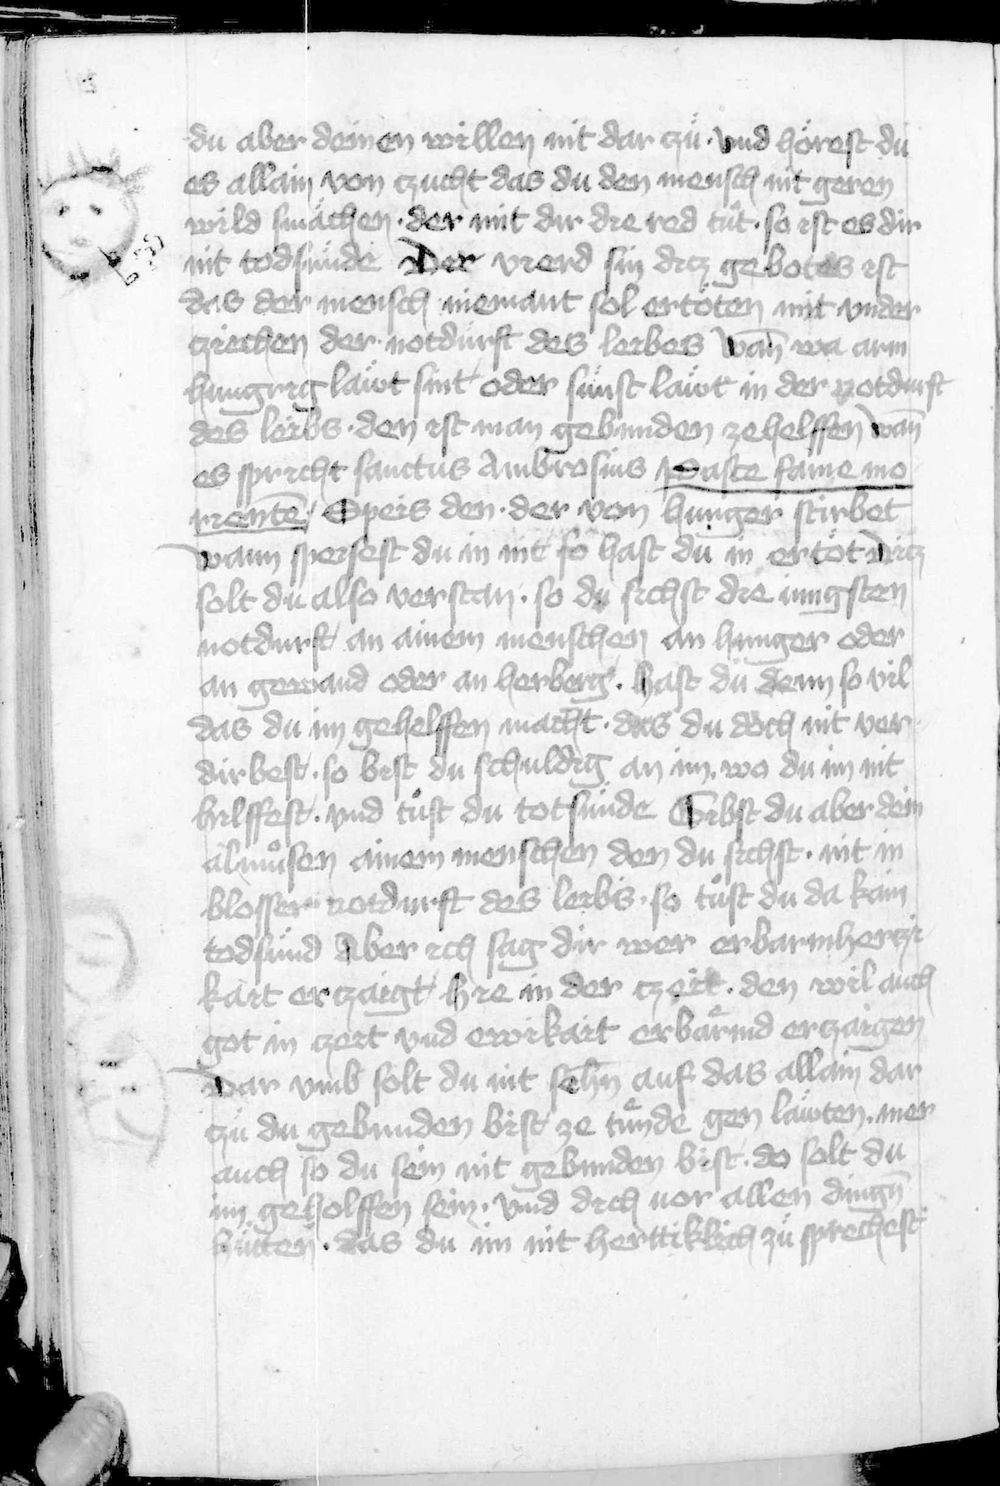 du aber deinen willen nit dar czů · Vnd hörest du
es allain von czucht das du den mensch nit geren
wild smächen · der mit dir die red tůt · so ist es dir
nit todsünde Der vierd sin dicz gebotes ist
das der mensch niemant sol ertöten mit vnder
cziechen der notdurft des leibes Wañ wa arm
hungrig läwt sint oder sünst läwt in der notdurft
des leibs · den ist man gebunden ze helffen Wañ
es spricht sanctus Ambrosius Pasce fame mo
rientē / Speis den · der von hunger stirbet
Wann speisest du in nit so hast du in ertöt Dicz
solt du also verstan · so du sichst die iungsten
notdurft an ainem menschen an hunger oder
an gewand oder an herberg · Hast du denn so vil
das du im gehelffen macht · das du doch nit ver
dirbest · so bist du schuldig an im · wo du im nit
hilffest · vnd tůst du totsünde Gibst du aber dein
almůsen ainem menschen den du sichst · nit in
blosser notdurft des leibs · so tůst du da kain
todsünd Aber ich sag dir wer erbarmherczi
kait erczaigt hie in der czeit · den wil auch
got in czeit vnd ewikait erbärmd erczaigen
Dar vmb solt du nit sehñ auf das allain dar
czů du gebunden bist ze tůnde gen läwten · mer
auch so du sein nit gebunden bist · do solt du
im geholffen sein · Vnd dich vor allen dingñ
hüten · das du im nit herttiklich zů sprechest